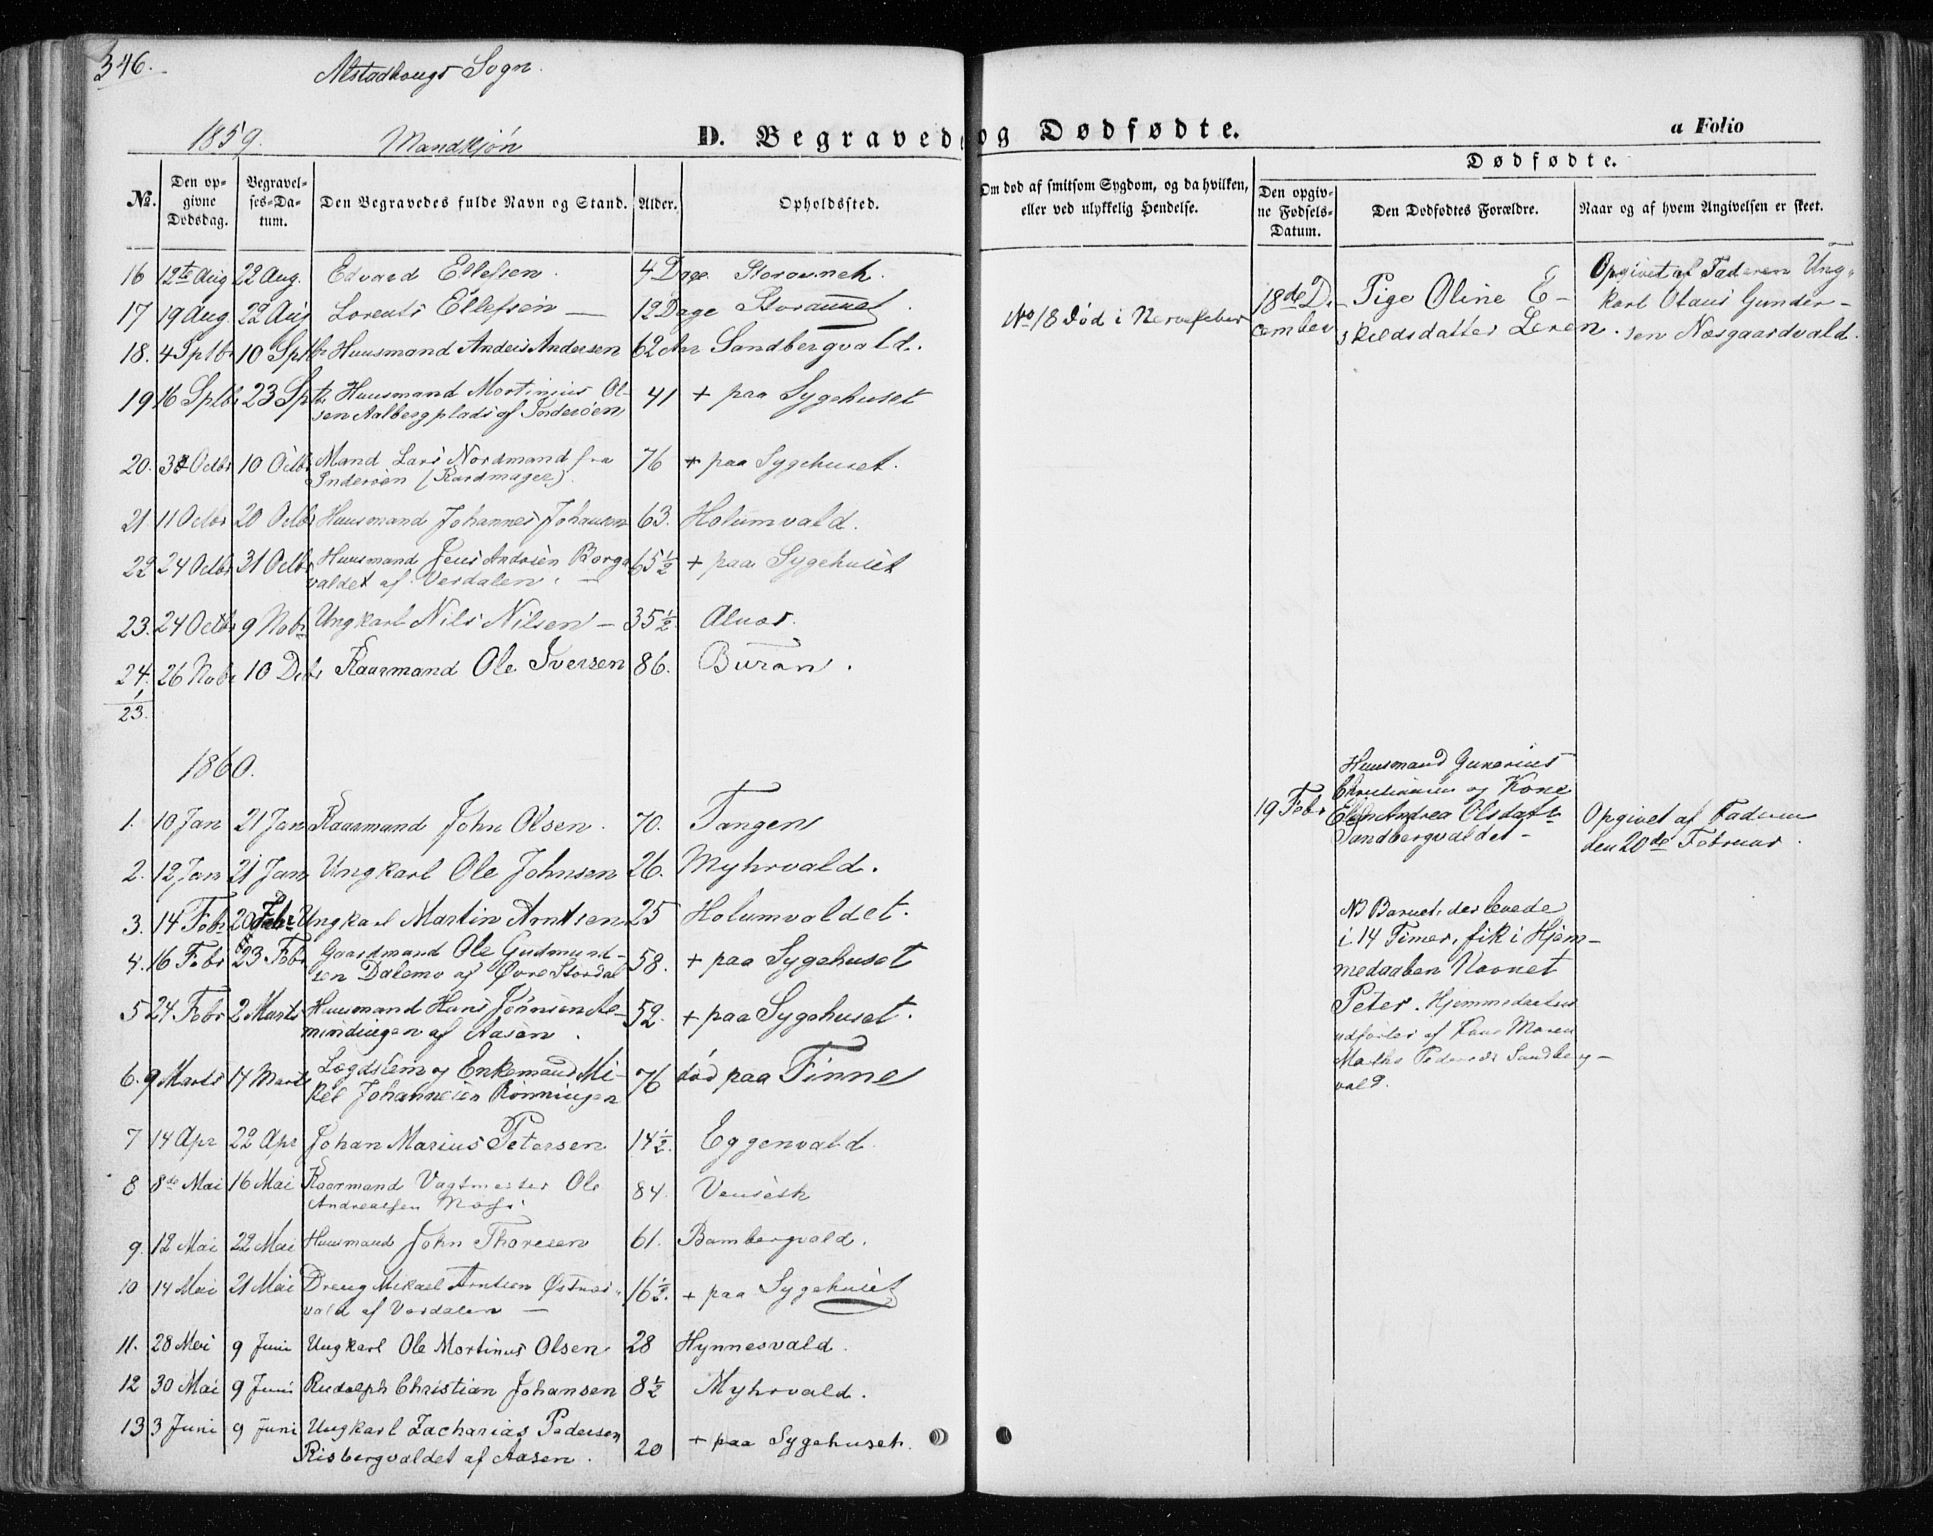 346.
Alstadhougs Sogn.
1859. Mandkjön
D. Begravede og Dødfødte.
a Folio
Dødfødte.
No. Den opgivne Dødsdag. Begravelses-Datum. Den Begravedes fulde Navn og Stand. Alder. Opholdssted. Om død af smitsom Sygdom, og da hvilken, eller ved ulykkelig Hendelse. Den opgivne Fødsels-Datum. Den Dødfødtes Forældre. Naar og af hvem Angivelsen er skeet.
16 12te Aug 22 Aug. Edvard Ellefsen. 4 Dage
17 19 Aug. 22 Aug Lorents Ellefsen — 12 Dage
18. 4 Sptbr 10 Sptbr Huusmand Anders Andersen 62 Aar Sandbergvald.
No 18 død i Nervefeber
18de De-
cember
Pige Oline E-
skildsdatter Leren.
Opgivet af Faderen Ung-
karl Olaus Gunder-
sen Næsgaardvald.
19 16 Sptbr 23 Sptbr Huusmand Mortinius Ol-
sen Aalberg plads af 41 + paa Sygehuset
20. Octbr 10 Octbr Mand Lars Nordmand fra
Inderøen (Kardmager). 76 + paa Sygehuset.
21. 11 Octbr 20 Octbr Huusmand Johannes Johansen 63. Holumvald.
22 24 Octbr 31 Octbr Huusmand Jens Andersen Borgs
valdet af Verdalen. — 65½ + paa Sygehuset
23. 24 Octbr 9 Nobr Ungkarl Nils Nilsen — 35½
24. 26 Nobr 10 Debr Kaarmand Ole Iversen 86. Buran.
1
23.
1860.
1. 10 Jan 21 Jan Kaarmand John Olsen. 70. Tangen
2. 12 Jan 21 Jan Ungkarl Ole Johnsen 26. Myhrvald.
19 Febr
Huusmand
og Kone
Ellen Andrea Olsdatr
Sandbergvaldet —
Opgivet af Faderen
den 20de Februar.
3. 14 Febr 20 Febr. Ungkarl Martin Arntsen 25 Holumvaldet.
4. 16 Febr 23 Febr Gaardmand Ole Gudmund-
sen Dalemo af Øvre Stordal 58. + paa Sygehuset
5 24 Febr 2 Marts Huusmand Hans Jónsen
af Aasen. 52. + paa Sygehuset.
6. 9 Marts 17 Marts Lægdslem og Enkemand Mi-
kel Johannesen Rønningen 76 død paa Finne
NB Barnet, der levede
i 14 Timer, fik i Hjem-
medaaben Navnet
Peter. Hjemmedaaben
udførtes af Kone Maren
Martha Pedersdr Sandberg-
vald.
7 14 Apr 22 Apr Johan Marius Petersen 14½ Eggenvald.
8 8de Mai 16 Mai Kaarmand Vagtmester Ole
Andreassen 84.
9. 12 Mai 22 Mai Huusmand John Thoresen 61. Bambergvald.
10 14 Mai 21 Mai Dreng Mikael Arntsen
vald af Værdalen — 16½. + paa Sygehuset
11. 28 Mai 9 Juni Ungkarl Ole Mortinus Olsen 28 Hynnesvald.
12 30 Mai 9 Juni Rudolph Christian Johansen 8½ Myhrvald.
13 3 Juni 9 Juni Ungkarl Zacharias Pedersen
Risbergvaldet af Aasen. 20 + paa Sygehuset.